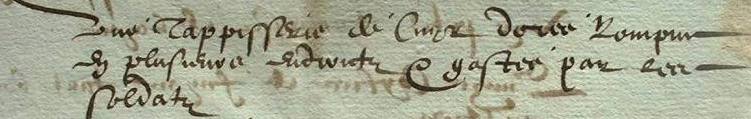 Une Tappisserie de Cuyr dorée Rompue
en plusieurs endroictz & gastée par les
soldatz